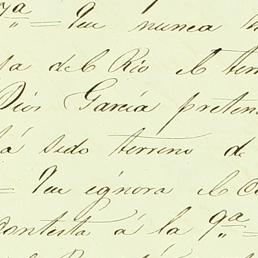 7ª = Que nunca h
ya del Rio el terr
Dios García preten
tá sido terreno de
= Que ignora el C
contesta á la 9ª =